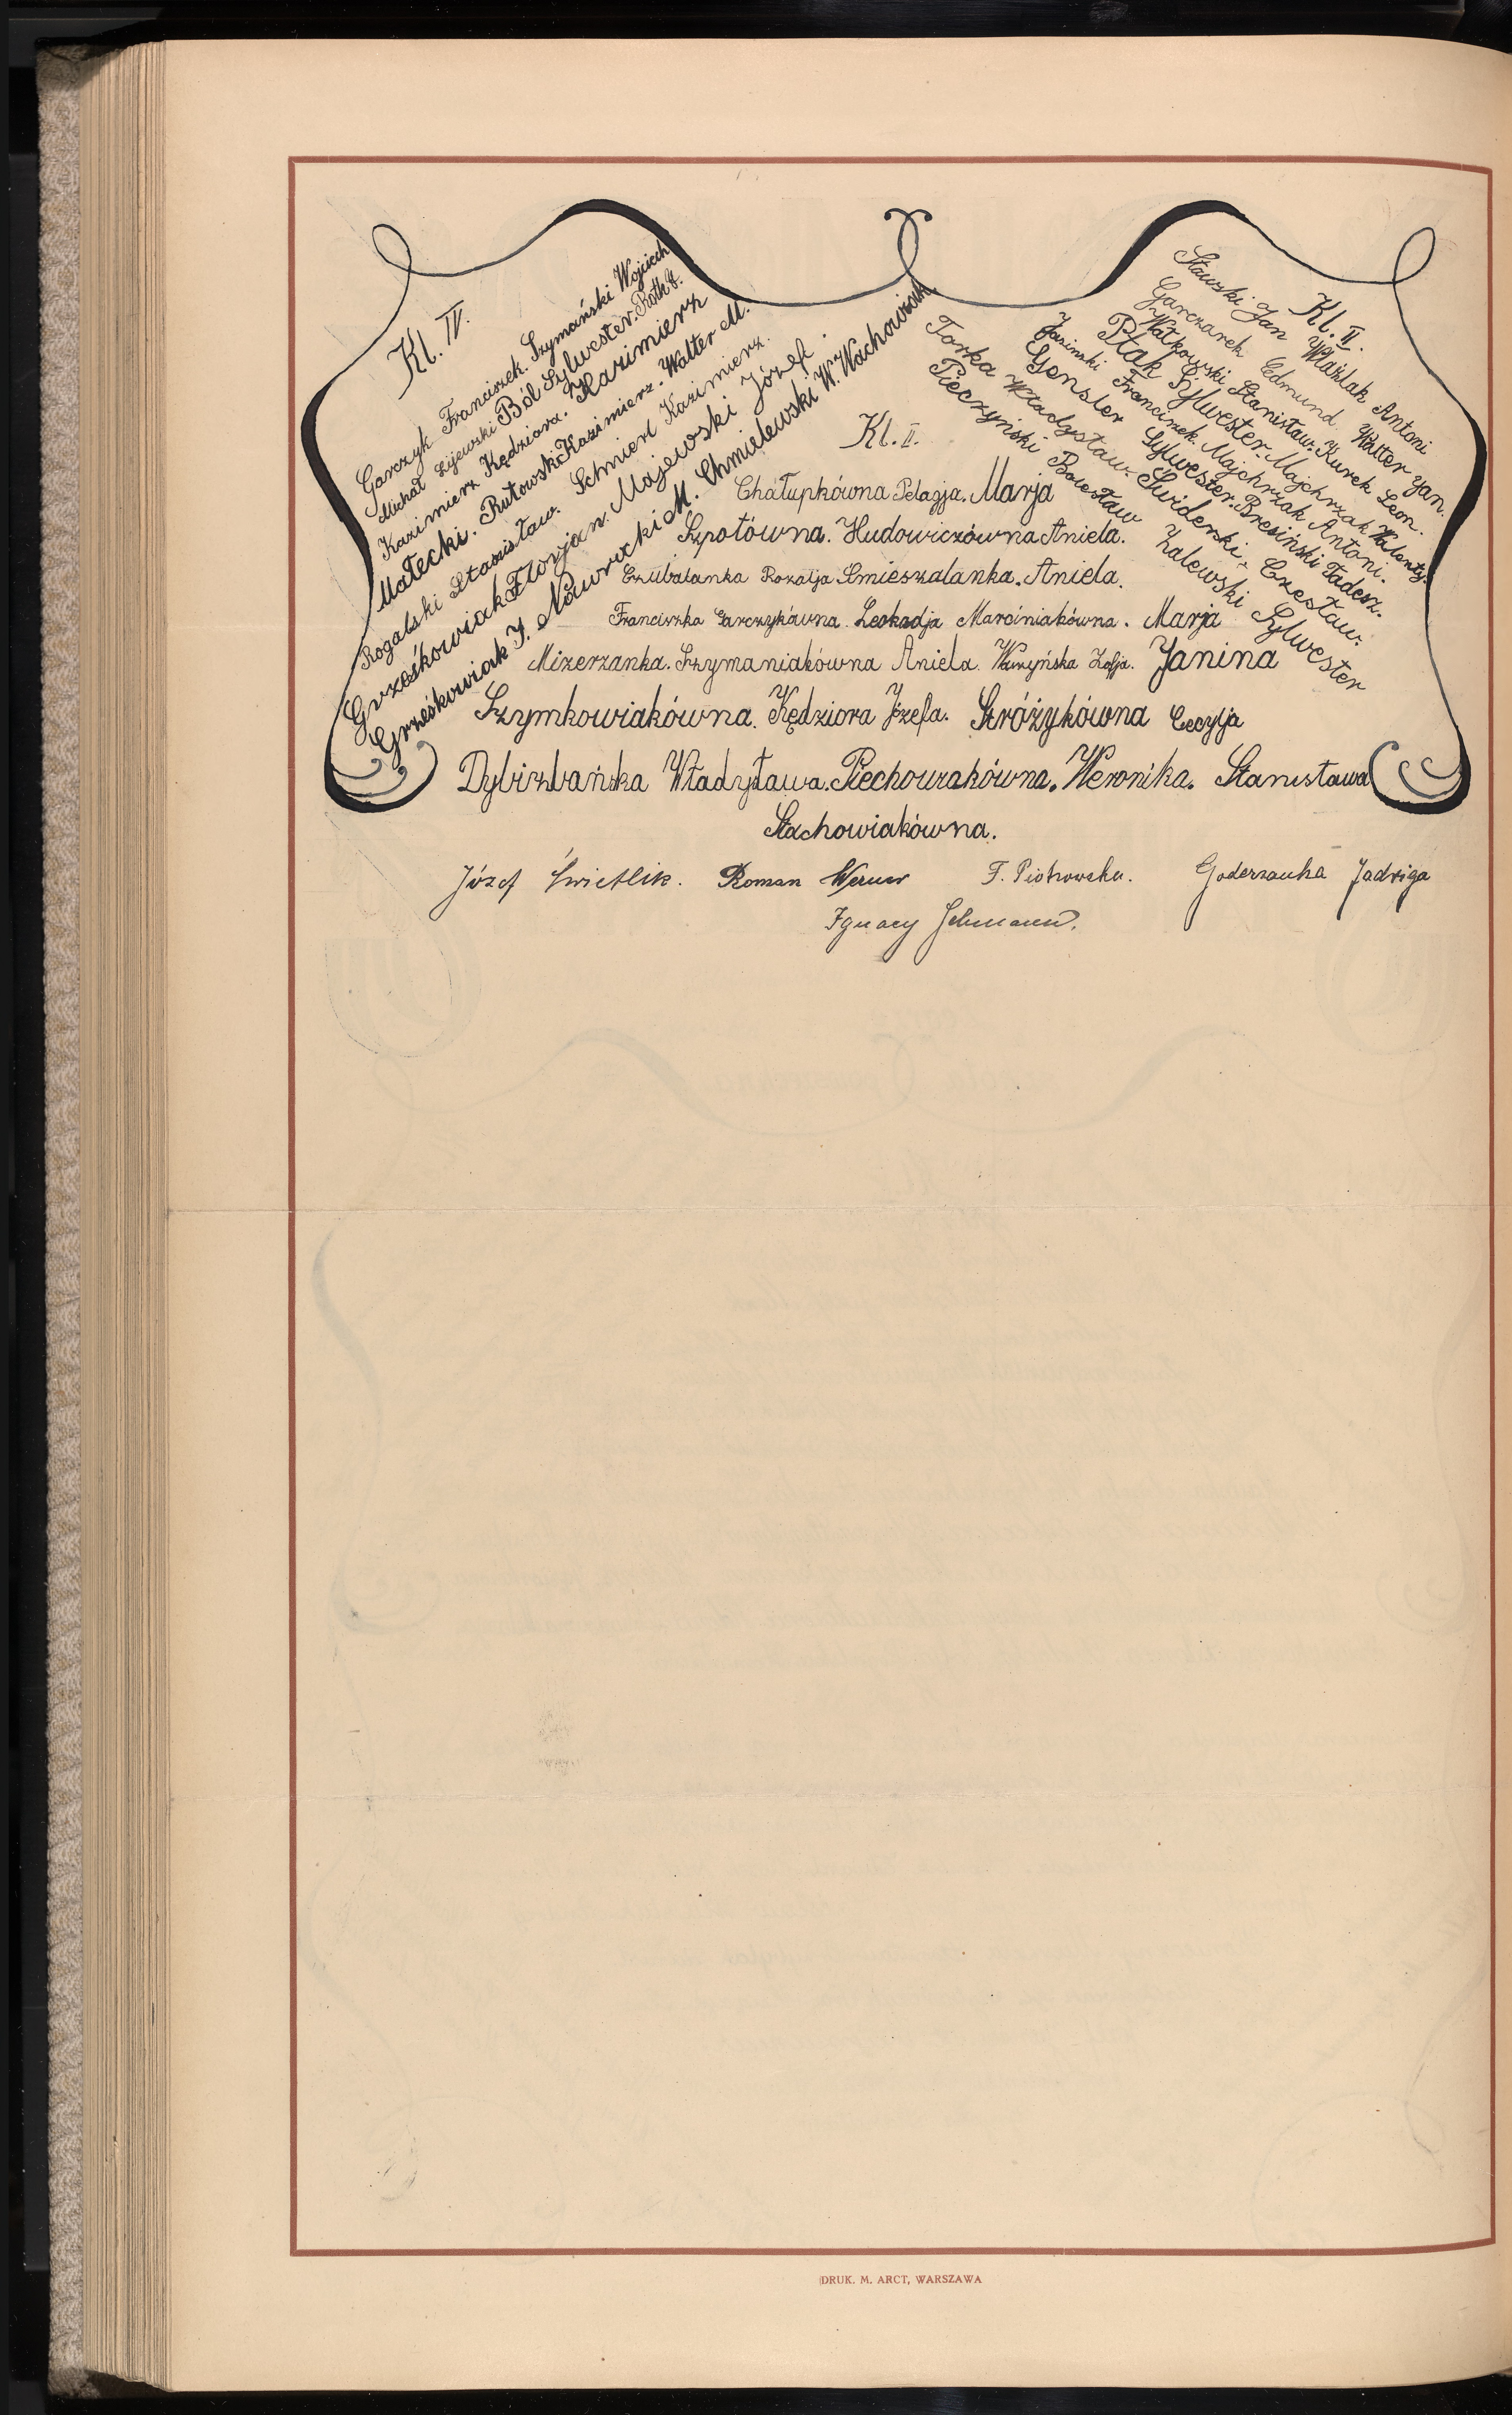 Kl. IV.
Garczyk Franciszek. Szymański Wojciech
Michał Lijewski Ból Sylwester. Roth
Kazimierz Kędziora. Kazimierz
Małecki. Rutowski Kazimierz. Walter M.
Rogalski Stanisław. Schmidt Kazimierz.
Grześkowiak Florjan. Majewski Józef.
Grześkowiak J. Nawrocki M. Chmielewski W. Wachowiak
Kl. II.
Stawski Jan Waźlak Antoni
Garczarek Edmund. Walter Jan.
Watkowski Stanisław. Kurek Leon.
Ptak Sylwester. Majchrzak Walenty.
Jasinski Francizek. Majchrzak Antoni.
Gensler Sylwester. Bresiński Tadesz.
Torka Władysław. Swiderski Czesław.
Pieczyński Bolesław Zalewski Sylwester
Kl. II.
Chałupkówna Pelagja. Marja
Szpotówna. Hudowiczówna Aniela.
Czubatanka Rozalja Smieszalanka. Aniela.
Franciszka Garczykówna. Leokadja Marciniakówna. Marja
Mizerzanka. Szymaniakówna Aniela. Warzyńska Zofja. Janina
Szymkowiakówna. Kędziora Józefa. Stróżykówna Cecylja
Dybizbańska Władysława. Piechowiakówna. Weronika. Stanisława
Stachowiakówna.
Józef Świetlik. Roman Werner F. Piotrowska. Goderzanka Jadwiga
Ignacy Schumann.
DRUK. M. ARCT, WARSZAWA